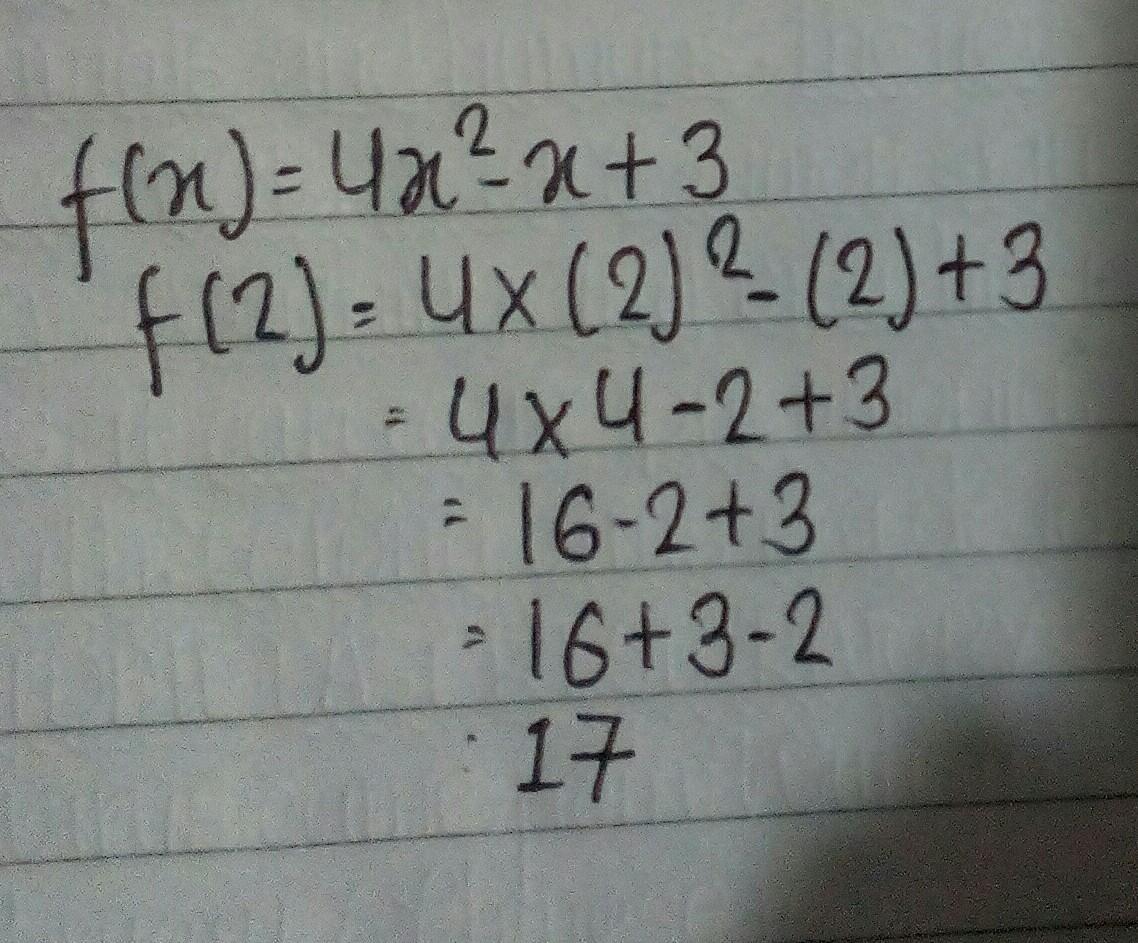 f(x) = 4x² - x + 3
f(2) = 4 × (2)² - (2) + 3
= 4 × 4 - 2 + 3
= 16 - 2 + 3
= 16 + 3 - 2
: 17